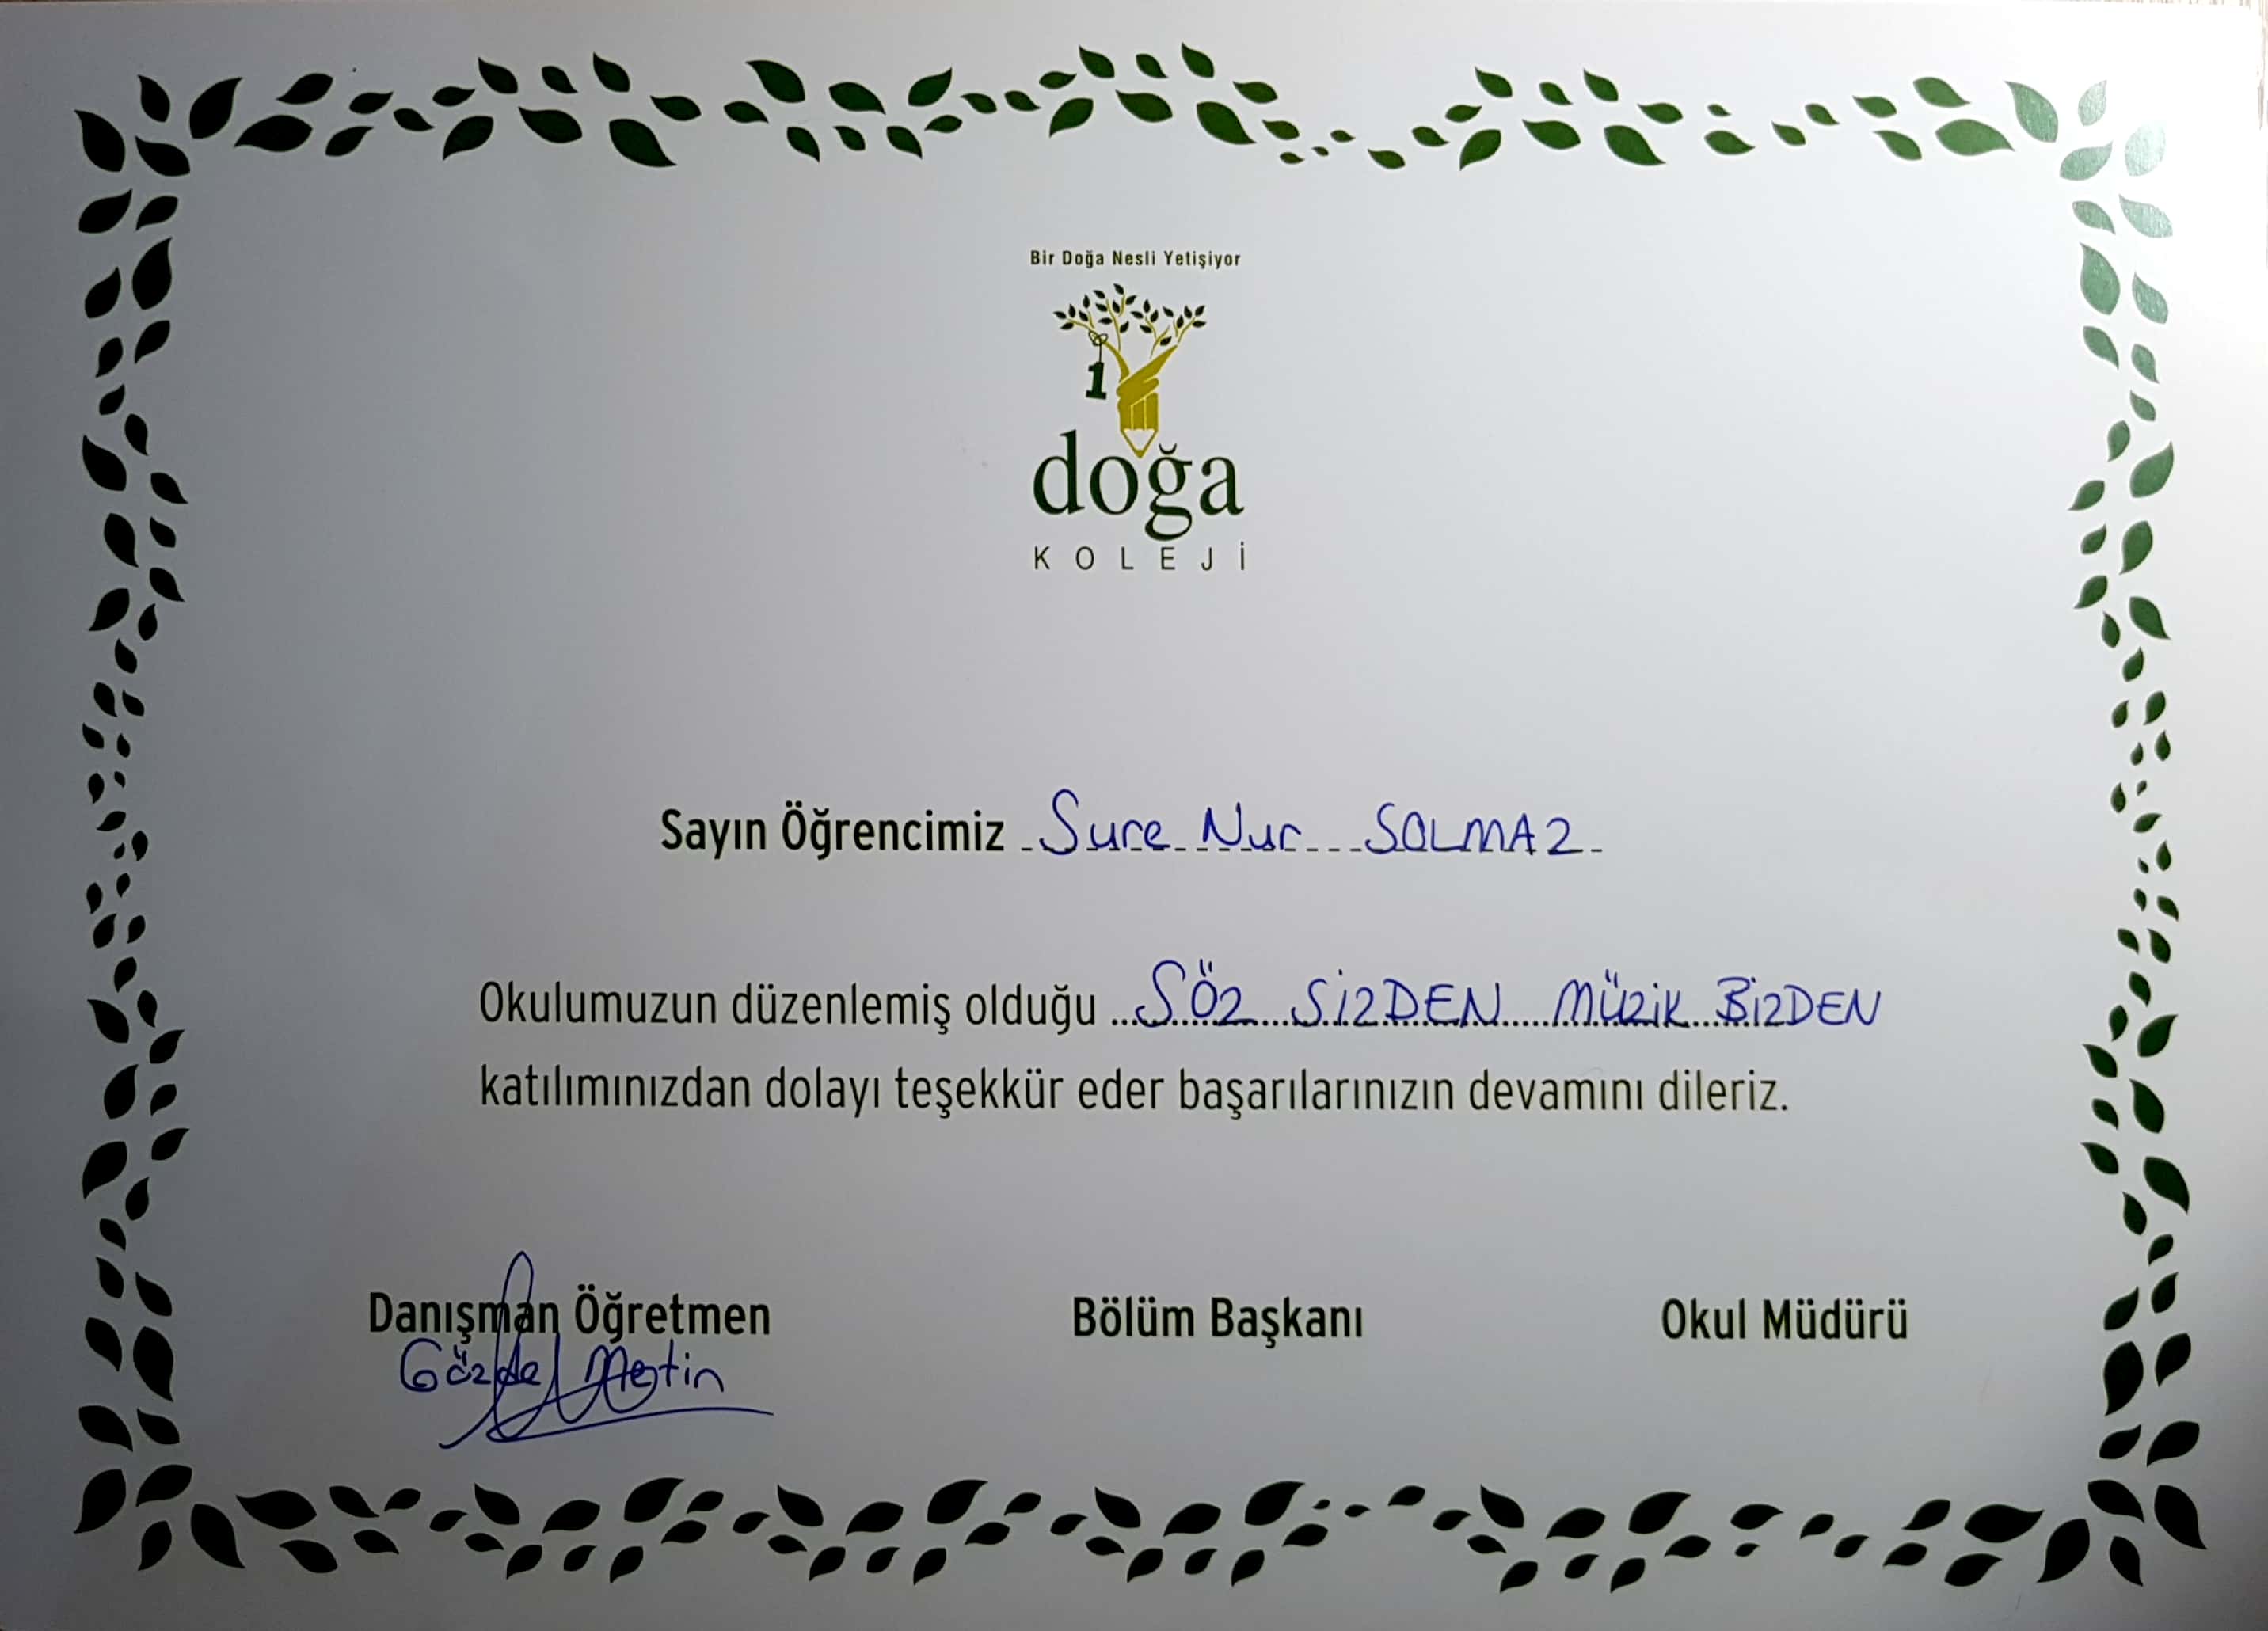 Bir Doğa Nesli Yetişiyor
1
doğa
KOLEJİ
Sayın Öğrencimiz Sure Nur SOLMAZ
Okulumuzun düzenlemiş olduğu SÖZ SİZDEN MÜZİK BİZDEN
katılımınızdan dolayı teşekkür eder başarılarınızın devamını dileriz.
Danışman Öğretmen Bölüm Başkanı Okul Müdürü
Gözde Metin